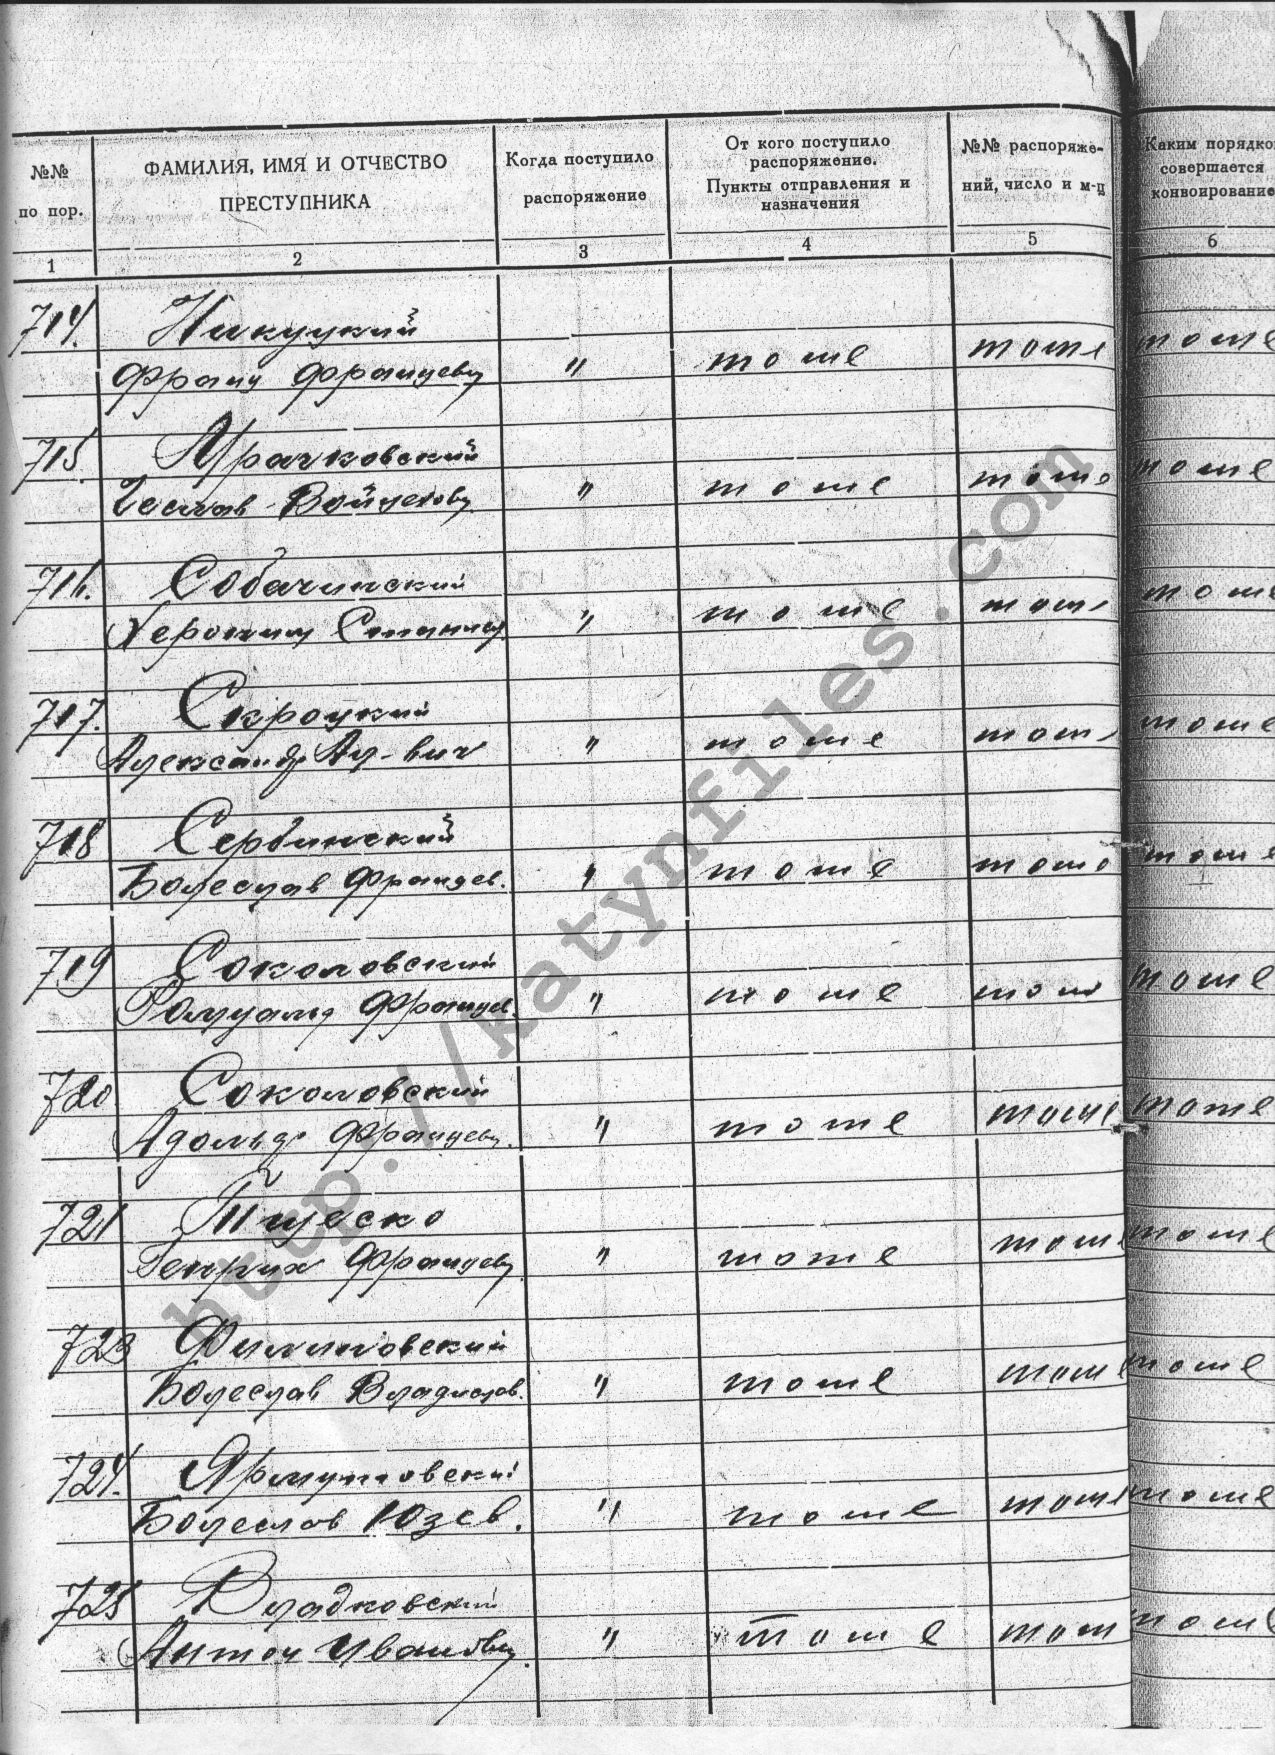 №№ по пор.
ФАМИЛИЯ, ИМЯ И ОТЧЕСТВО
ПРЕСТУПНИКА
Когда поступило
распоряжение
От кого поступило
распоряжение.
Пункты отправления и
назначения
№№ распоряже-
ний, число и м-ц
Каким порядко
совершается
конвоирование
1 2 3 4 5 6
714. Никуцкий
Франц Францевич " тоже тоже тоже
715. Мрачковский
Чеслав Войцехович " тоже тоже тоже
716. Собачинский
Хероним Станисл. " тоже тоже тоже
717. Скроцкий
Александр Ал-вич " тоже тоже тоже
718 Сербинский
Болеслав Францев. " тоже тоже тоже
719 Соколовский
Ромуальд Францев. " тоже тоже тоже
720 Соколовский
Адольф Францевич. " тоже тоже тоже
721 Тщеско
Генрих Францевич " тоже тоже тоже
723 Филиповский
Болеслав Владислав. " тоже тоже тоже
724. Ярмутовский
Болеслав Юзев. " тоже тоже тоже
725 Владковский
Антон Иванович. " тоже тоже тоже
http://katynfiles.com